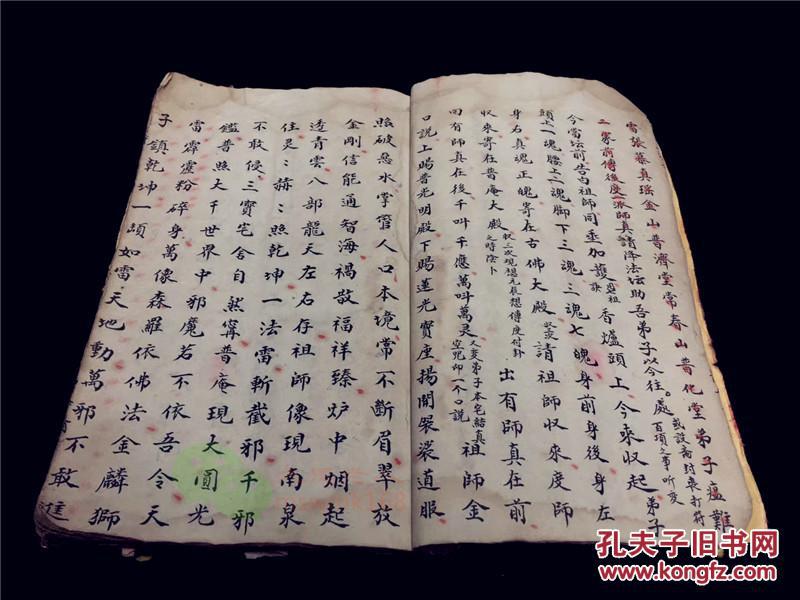 雷張蔡真瑶金山普濟堂常春山普化堂弟子瘟難
二家前傳後度派師真請降法坛助吾弟子以今往。處
或設斋封表打符
百項之事听應
今當坛前告白祖師同垂加護
香爐頭上今來收起弟子
頭上一魂腰上一魂脚下三魂三魂七魄身前身後身左
身右真魂正魄寄在古佛大殿
請祖師收來度師
收來寄在普庵大殿
之時陰卜
出有師真在前
回有師真在後千叫千應萬叫萬灵
祖師金
口說上賜普光明殿下賜蓮光寳座揚開袈裟道服
照破惡水掌管人口本境常不断眉翠放
金剛信能通智海禍散福祥臻炉中烟起
透青雲八部龍天左右存祖師像現南泉
住灵:赫:照乾坤一法雷斬截邪千邪
不敢侵三寳宅舍自然寗普庵現大圓光
鑑普照大千世界中邪魔若不依吾令天
雷霹靂粉碎身萬像森羅依佛法金麟獅
子鎮乾坤一頭如雷天地動萬邪不敢
孔夫子旧书网
www.kongfz.com